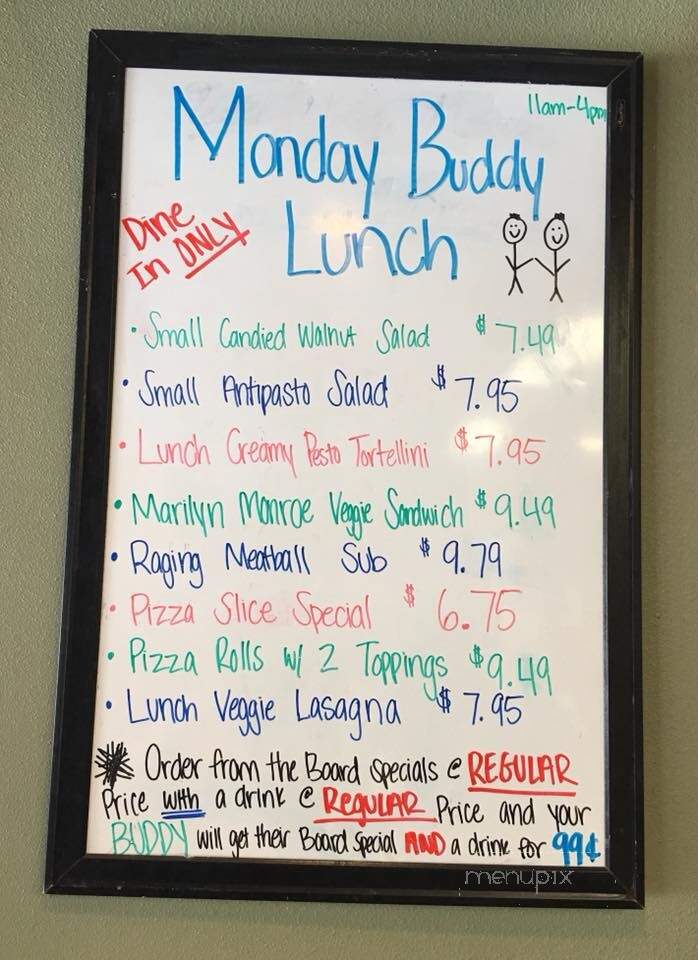 11am-4pm
Monday Buddy
Lunch
Dine
In ONLY
• Small Candied Walnut Salad $7.49
• Small Antipasto Salad $7.95
• Lunch Creamy Pesto Tortellini $7.95
• Marilyn Monroe Veggie Sandwich $9.49
• Raging Meatball Sub $9.79
• Pizza Slice Special $6.75
• Pizza Rolls w/ 2 Toppings $9.49
• Lunch Veggie Lasagna $7.95
* Order from the Board Specials @ REGULAR
Price with a drink @ REGULAR Price and your
BUDDY will get their Board Special AND a drink for 99¢
menupix